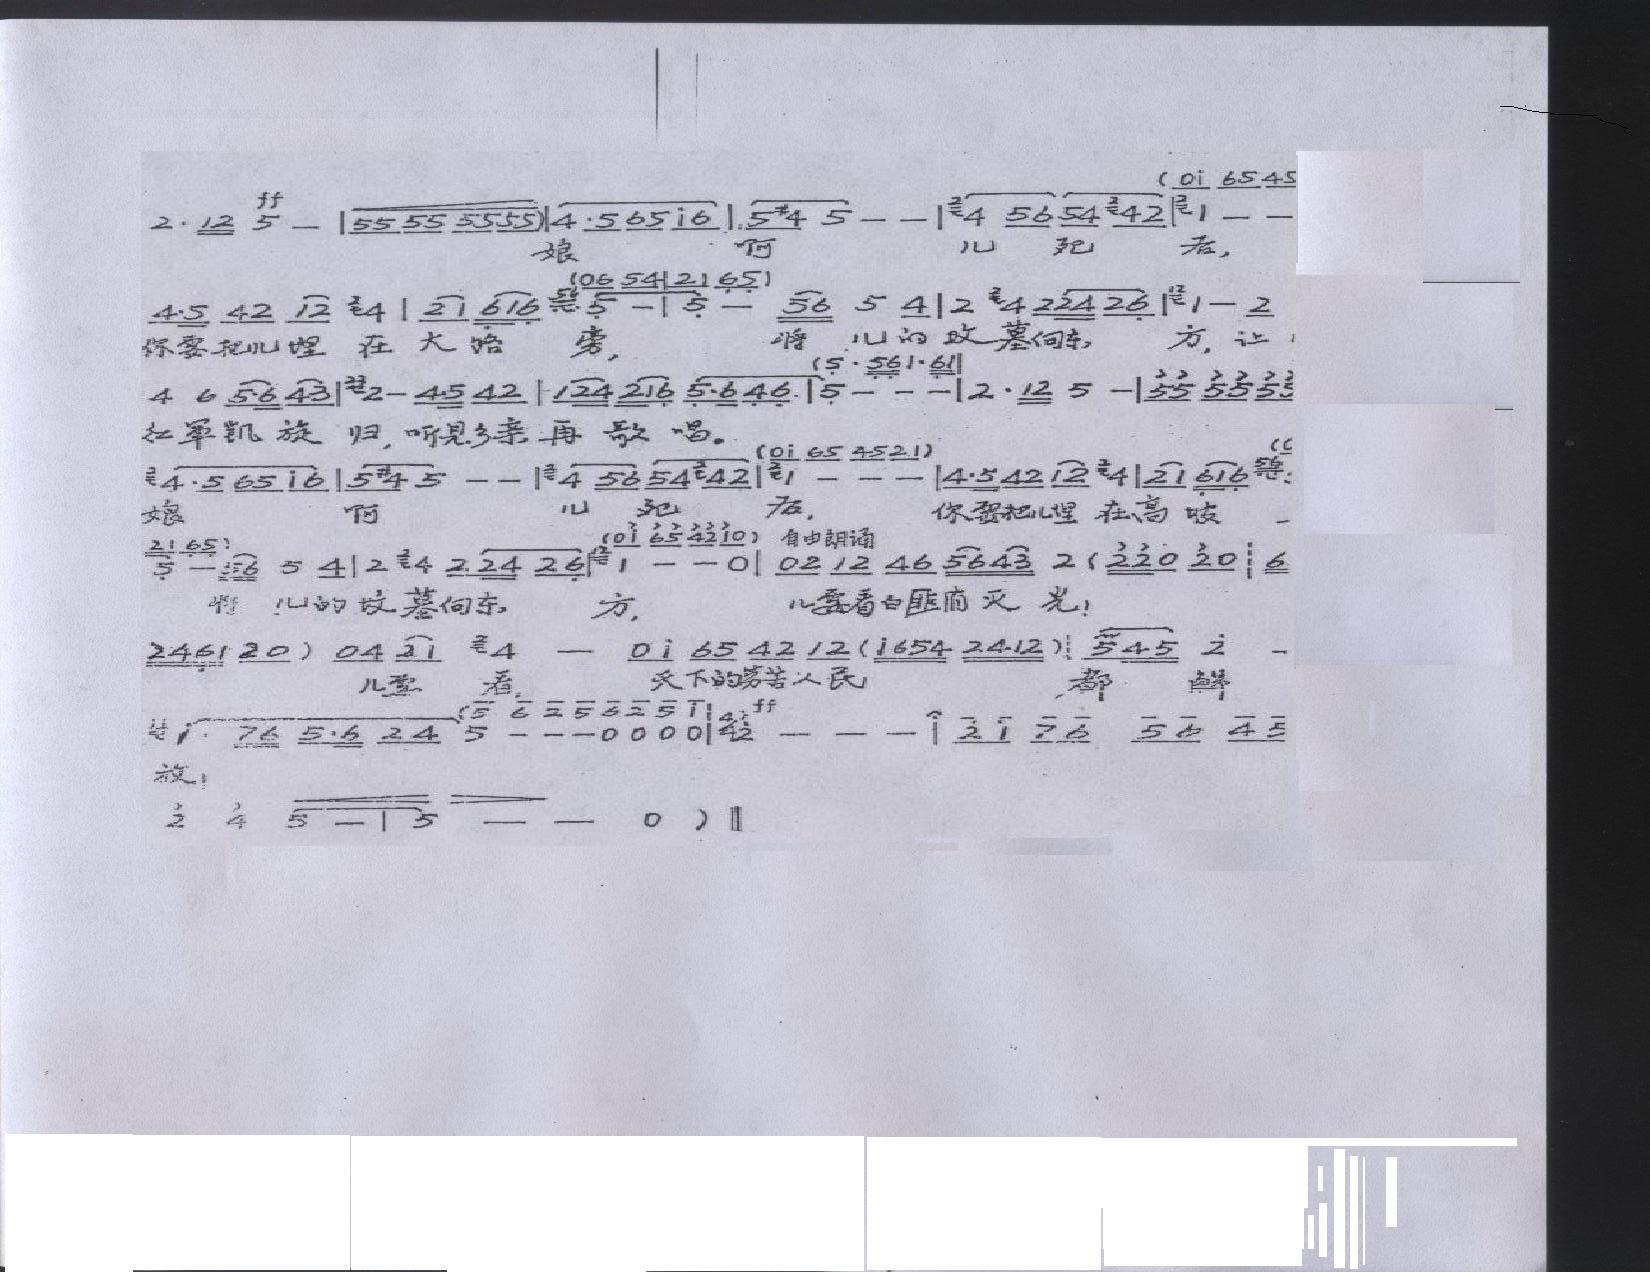 (0i 6545
ff
2·12 5 — |55 55 5555)|4·565i6|5#4 5 — —|4 56 5442|1 — —
娘 何 儿 死 后,
(06 54|21 65)
4·5 42 i2 4 | 2i 616 5 —|5 — 56 5 4|2 4 224 26|1— 2
你要把儿埋 在 大路 旁, 将 儿的坟墓向东 方, 让
(5·561·61|
4 6 5·6 43|2— 4·5 42 |124 216 5·646|5 — — —|2·12 5 —|55 555
红军凯旋 归, 听见乡亲再歌唱。
(0i 65 4521)
4·5 65 i6|5#4 5 — —|4 56 5442|1 — — —|4·5 42 i2 4|21 616
娘 何 儿 死 后, 你要把儿埋在高坡
21 65) (0i 65 42 10) 自由朗诵
5 — 56 5 4|2 4 2 24 26|1 — — 0| 02 12 46 5643 2 (220 20 6
将 儿的坟墓向东 方, 儿要看白匪消灭光!
2461 20) 04 2i 4 — 0i 65 42 12(i654 2412) 54·5 2 —
儿要 看, 天下的劳苦人民 都 解
(5 6 2 5 6 2 5 1| ff
i· 76 5·6 24 5 — — —0 0 0 0|42 — — — | 2i 76 56 45
放!
2 4 5 —| 5 — — 0 )‖